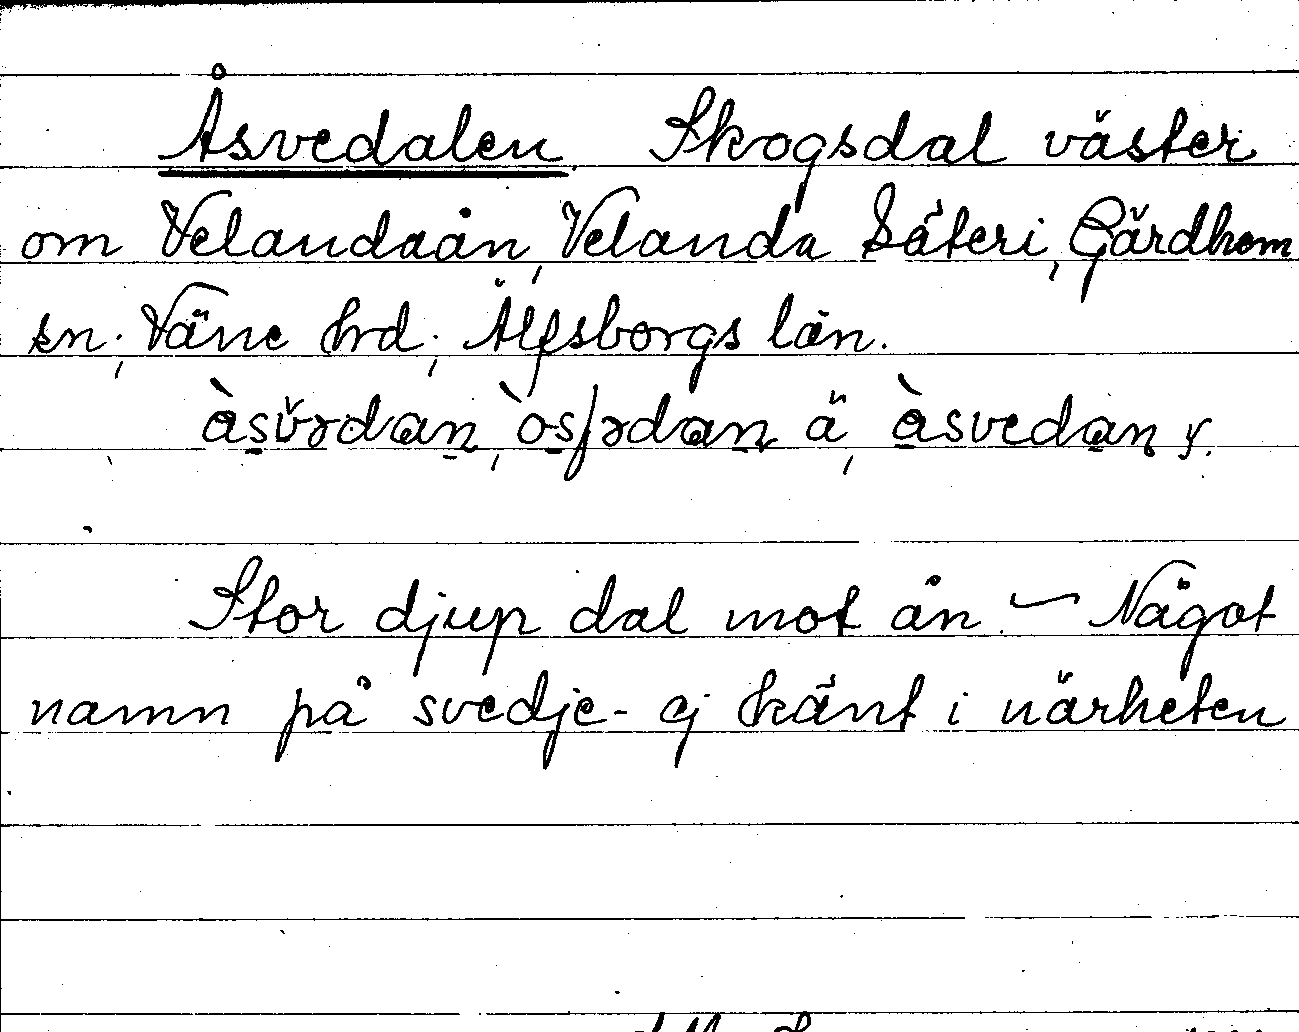 Åsvedalen. Skogsdal väster
om Velandaån, Velanda Säteri, Gärdhem
sn; Väne hrd; Älfsborgs län.
àsv̌ədan, òsfədan ä, àsvedan y.
Stor djup dal mot ån. — Något
namn på svedje- ej känt i närheten